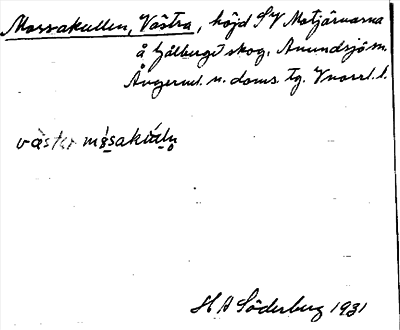 Mossakullen, Västra, höjd SV Motjärnarna
å Gålbergs skog, Anundsjö sn.
Ångerml. n. doms. tg. Vnorrl. l.
väster
H A Söderberg 1931